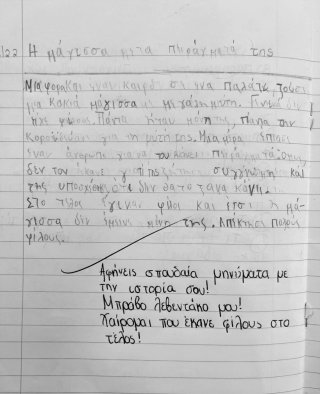 122 Η μάγισσα με τα πειράγματά της
Μια φορά και έναν καιρό σε ένα παλάτι ζούσε
μια κακιά μάγισσα με μεγάλη μύτη. Αυτή δεν
είχε φίλους. Πάντα ήταν μόνη της, γιατί την
κορόιδευαν για τη μύτη της. Μια μέρα έπιασε
έναν άνθρωπο για να του κάνει πειράγματα. Όμως
δεν τον έκανε γιατί ζήτησε συγγνώμη και
της υποσχέθηκε ότι δεν θα το ξανά κάνει.
Στο τέλος έγιναν φίλοι και έτσι η μά-
γισσα δεν έμεινε μόνη της. Απέκτησε πολλούς
φίλους.
Αφήνεις σπουδαία μηνύματα με
την ιστορία σου!
Μπράβο λεβεντάκο μου!
Χαίρομαι που έκανε φίλους στο
τέλος!